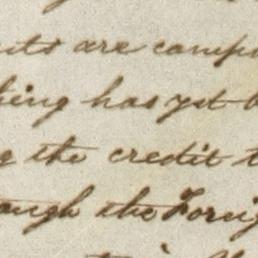 nts are comp
hing has yet b
g the credit t
ough the Foreig